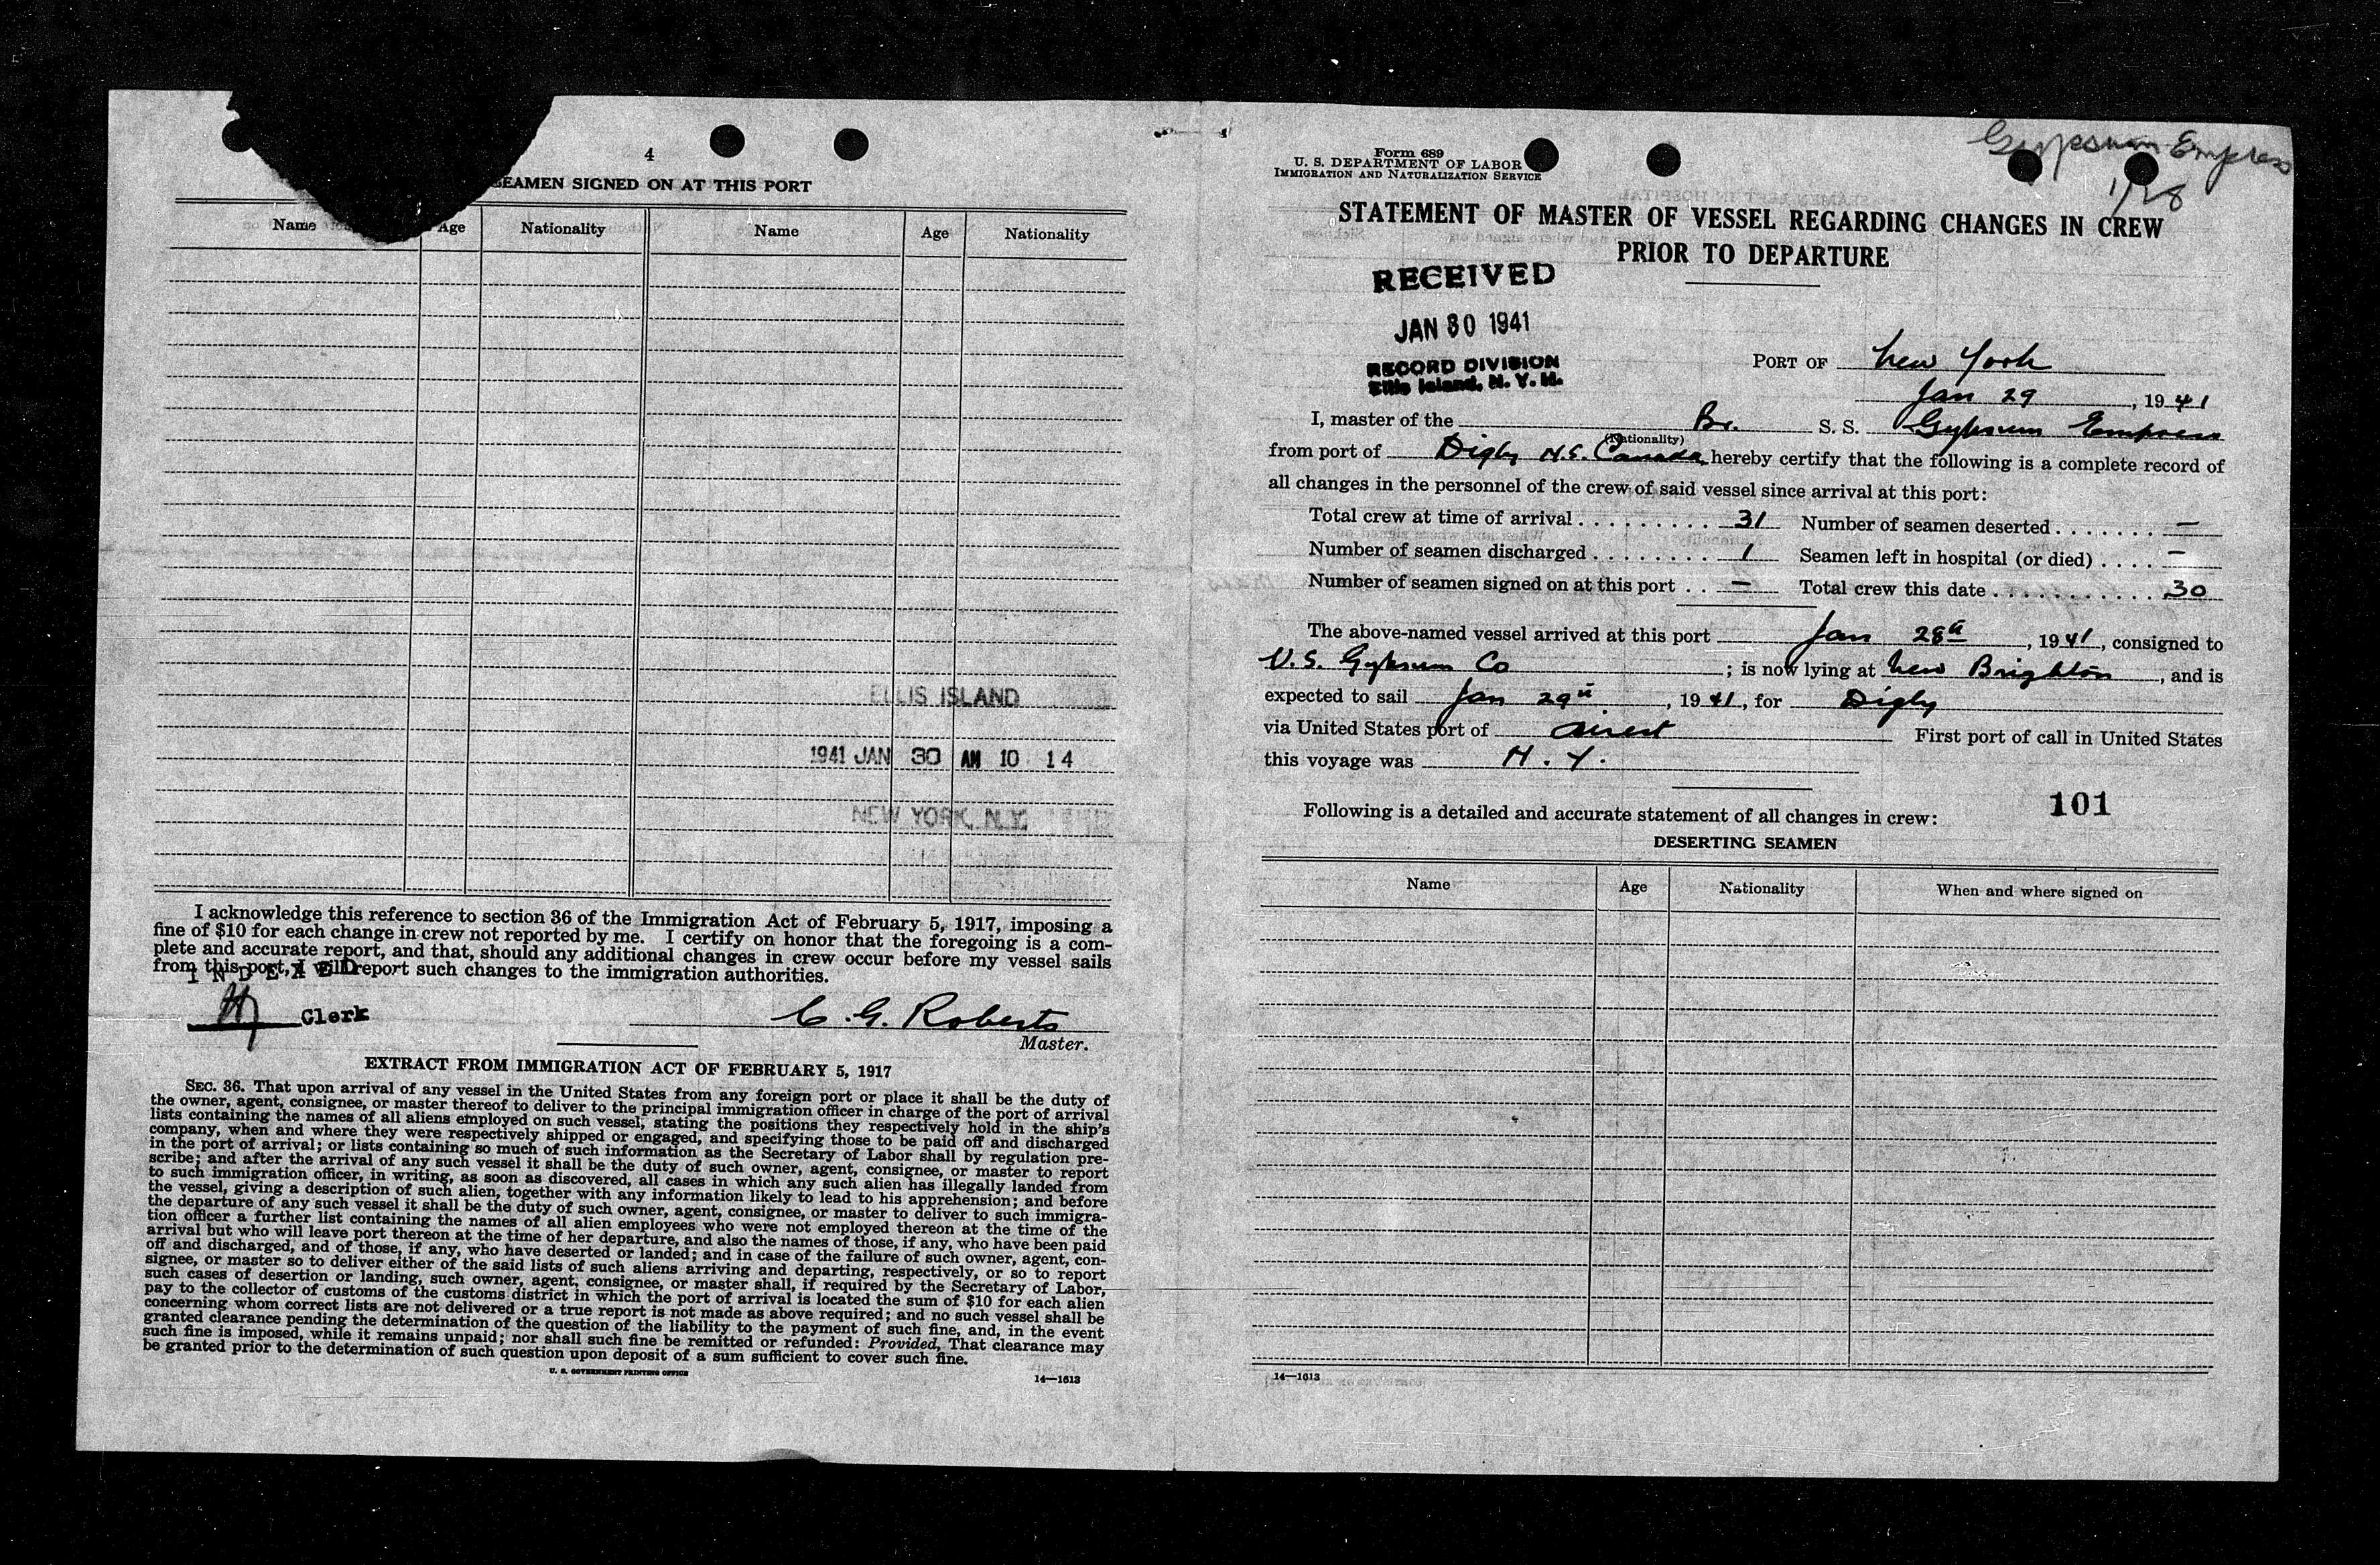 4
SEAMEN SIGNED ON AT THIS PORT
Name Age Nationality Name Age Nationality
ELLIS ISLAND
1941 JAN 30 AM 10 14
NEW YORK, N.Y.
I acknowledge this reference to section 36 of the Immigration Act of February 5, 1917, imposing a
fine of $10 for each change in crew not reported by me. I certify on honor that the foregoing is a com-
plete and accurate report, and that, should any additional changes in crew occur before my vessel sails
from this port, I will report such changes to the immigration authorities.
INDEXED
Clerk
C. G. Roberts
Master.
EXTRACT FROM IMMIGRATION ACT OF FEBRUARY 5, 1917
SEC. 36. That upon arrival of any vessel in the United States from any foreign port or place it shall be the duty of
the owner, agent, consignee, or master thereof to deliver to the principal immigration officer in charge of the port of arrival
lists containing the names of all aliens employed on such vessel, stating the positions they respectively hold in the ship's
company, when and where they were respectively shipped or engaged, and specifying those to be paid off and discharged
in the port of arrival; or lists containing so much of such information as the Secretary of Labor shall by regulation pre-
scribe; and after the arrival of any such vessel it shall be the duty of such owner, agent, consignee, or master to report
to such immigration officer, in writing, as soon as discovered, all cases in which any such alien has illegally landed from
the vessel, giving a description of such alien, together with any information likely to lead to his apprehension; and before
the departure of any such vessel it shall be the duty of such owner, agent, consignee, or master to deliver to such immigra-
tion officer a further list containing the names of all alien employees who were not employed thereon at the time of the
arrival but who will leave port thereon at the time of her departure, and also the names of those, if any, who have been paid
off and discharged, and of those, if any, who have deserted or landed; and in case of the failure of such owner, agent, con-
signee, or master so to deliver either of the said lists of such aliens arriving and departing, respectively, or so to report
such cases of desertion or landing, such owner, agent, consignee, or master shall, if required by the Secretary of Labor,
pay to the collector of customs of the customs district in which the port of arrival is located the sum of $10 for each alien
concerning whom correct lists are not delivered or a true report is not made as above required; and no such vessel shall be
granted clearance pending the determination of the question of the liability to the payment of such fine, and, in the event
such fine is imposed, while it remains unpaid; nor shall such fine be remitted or refunded: Provided, That clearance may
be granted prior to the determination of such question upon deposit of a sum sufficient to cover such fine.
U. S. GOVERNMENT PRINTING OFFICE
14—1613
Gypsum Empress
1/28
Form 689
U. S. DEPARTMENT OF LABOR
IMMIGRATION AND NATURALIZATION SERVICE
STATEMENT OF MASTER OF VESSEL REGARDING CHANGES IN CREW
PRIOR TO DEPARTURE
RECEIVED
JAN 30 1941
RECORD DIVISION
Ellis Island, N. Y. H.
PORT OF New York
Jan 29, 1941
I, master of the Br. S. S. Gypsum Empress
(Nationality)
from port of Digby N.S. Canada, hereby certify that the following is a complete record of
all changes in the personnel of the crew of said vessel since arrival at this port:
Total crew at time of arrival 31 Number of seamen deserted —
Number of seamen discharged 1 Seamen left in hospital (or died) —
Number of seamen signed on at this port — Total crew this date 30
The above-named vessel arrived at this port Jan 28th, 1941, consigned to
U.S. Gypsum Co; is now lying at New Brighton, and is
expected to sail Jan 29th, 1941, for Digby
via United States port of direct First port of call in United States
this voyage was N.Y.
101
Following is a detailed and accurate statement of all changes in crew:
DESERTING SEAMEN
Name Age Nationality When and where signed on
14—1613